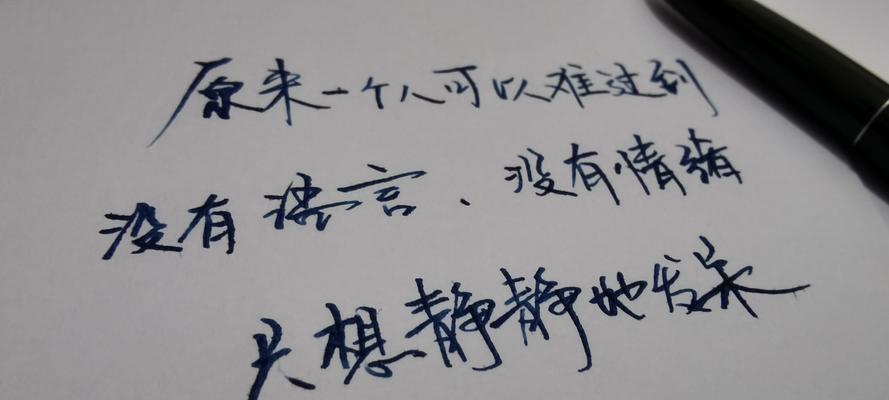 原来一个人可以难过到
没有语言、没有情绪
只想静静地发呆